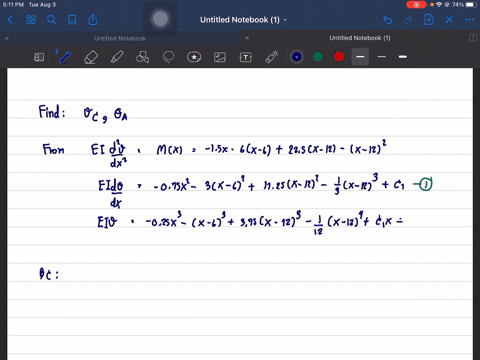 5:11 PM Tue Aug 3
74%
Untitled Notebook (1)
Untitled Notebook
Untitled Notebook (1)
Find: υc, θA
From EI d²υ/dx² = M(x) = -1.5x - 6(x-6) + 22.5(x-12) - (x-12)²
EI dυ/dx = -0.75x² - 3(x-6)² + 11.25(x-12)² - 1/3 (x-12)³ + C₁ - ①
EIυ = -0.25x³ - (x-6)³ + 3.75(x-12)³ - 1/12 (x-12)⁴ + C₁x
υc: